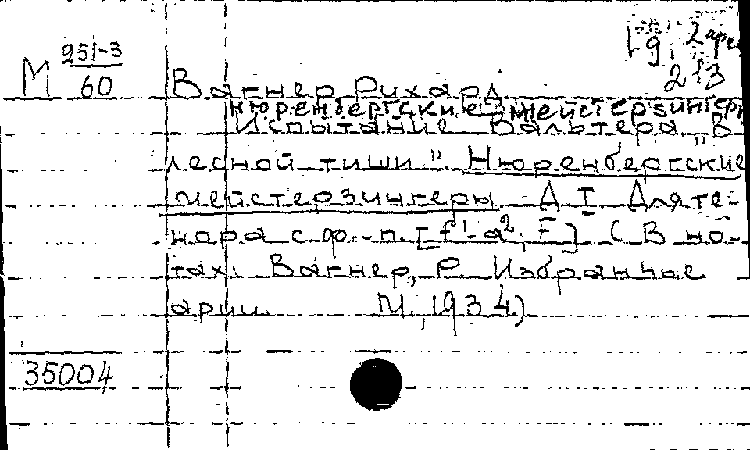 19. 2 ари
213
М 251-3
60
Вагнер Рихард
Нюренбергские мейстерзингеры
Испытание Вальтера „В
лесной тиши". Нюренбергские
мейстерзингеры. А I Для те-
нора с ф.-п. [f¹-a²; F] (В но-
тах: Вагнер, Р. Избранные
арии. М., 1934.)
35004